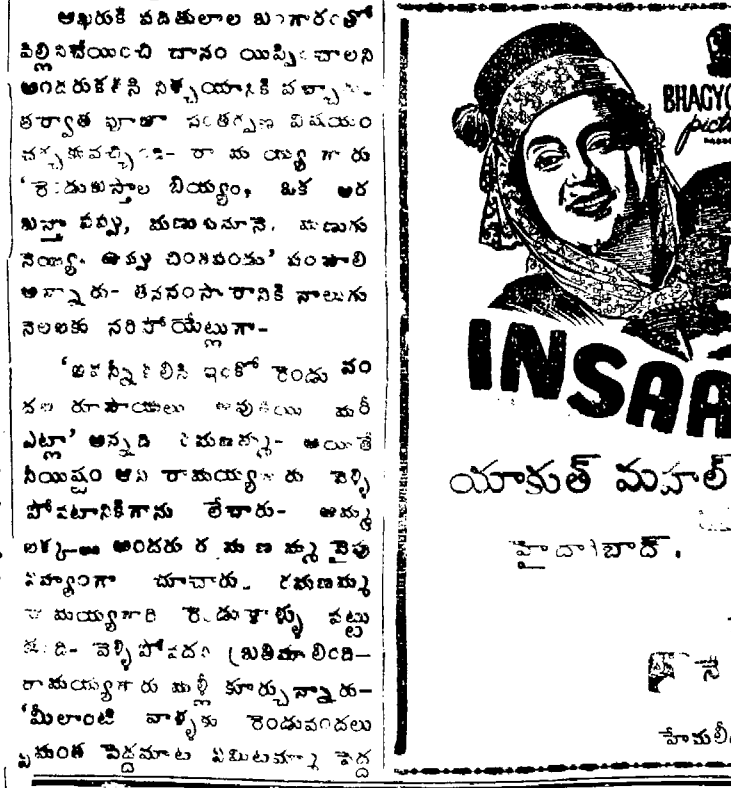 ఆఖరుకి పదితులాల బంగారంతో
పిల్లినిచేయించి దానం యిప్పించాలని
అందరుకలిసి నిశ్చయానికి వచ్చారు-
తర్వాత పూజా సంతర్పణ విషయం
చర్చకువచ్చింది- రామయ్యగారు
'రెండుబస్తాల బియ్యం, ఒక అర
బస్తా పప్పు, మణుగునూనె, మణుగు
నెయ్యి, ఉప్పు చింతపండు' పంపాలి
అన్నారు- తనసంసారానికి నాలుగు
నెలలకు సరిపోయేట్లుగా-
'అవన్నీకలిసి ఇంకో రెండు వం
దల రూపాయలు అవుతయి మరీ
ఎట్లా' అన్నది రమణమ్మ- అయితే
నీయిష్టం అని రామయ్యగారు వెళ్ళి
పోవటానికిగాను లేచారు- అమ్మ
లక్క-లు అందరు రమణమ్మ వైపు
చూచారు- రమణమ్మ
రామయ్యగారి రెండుకాళ్ళు పట్టు
కుంది- వెళ్ళిపోవద్దని బ్రతిమాలింది-
రామయ్యగారు మళ్లీ కూర్చున్నారు-
'మీలాంటి వాళ్ళకు రెండువందలు
ఏమంత పెద్దమాట ఏమిటమ్మా పెద్ద
BHAGYO
pict
INSAA
యాకుత్ మహల్
హైద్రాబాద్.